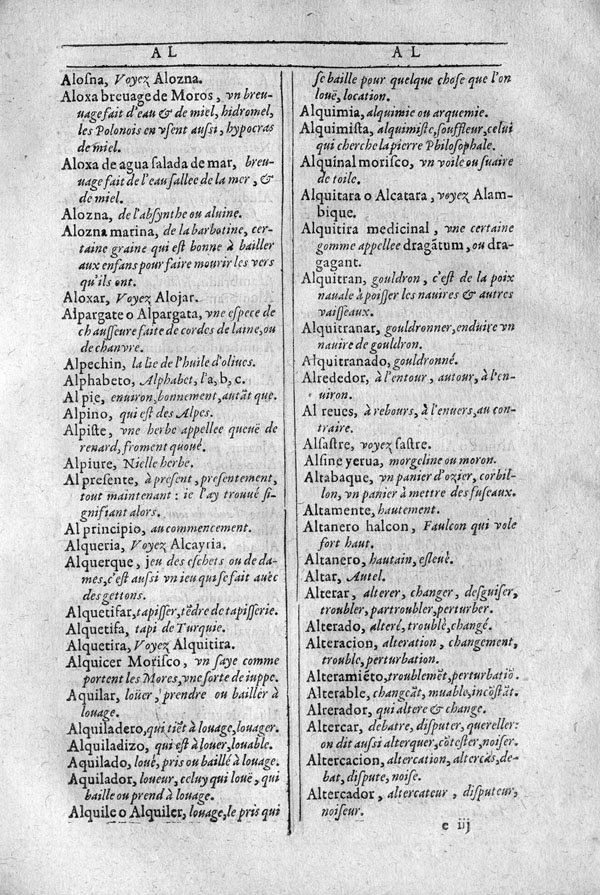 A L
Aloſna, Voyez Alozna.
Aloxa breuage de Moros, vn breu-
uage fait d'eau & de miel, hidromel,
les Polonois en vſent auſſi, hypocras
de miel.
Aloxa de agua salada de mar, breu-
uage fait de l'eau ſallee de la mer, &
de miel.
Alozna, de l'abſynthe ou aluine.
Alozna marina, de la barbotine, cer-
taine graine qui est bonne à bailler
aux enfans pour faire mourir les vers
qu'ils ont.
Aloxar, Voyez Alojar.
Alpargate o Alpargata, vne eſpece de
chauſſeure faite de cordes de laine, ou
de chanvre.
Alpechin, la lie de l'huile d'oliues.
Alphabeto, Alphabet, l'a, b, c.
Al pie, enuiron, bonnement, autāt que.
Alpino, qui est des Alpes.
Alpiſte, vne herbe appellee queuë de
renard, froment quoué.
Alpiure, Nielle herbe.
Al preſente, à preſent, preſentement,
tout maintenant: ie l'ay trouué ſi-
gnifiant alors.
Al principio, au commencement.
Alqueria, Voyez Alcayria.
Alquerque, jeu des eſchets ou de da-
mes, c'est auſſi vn ieu qui ſe fait auèc
des gettons.
Alquetifar, tapiſſer, tēdre de tapiſſerie.
Alquetifa, tapi de Turquie.
Alquetira, Voyez Alquitira.
Alquicer Moriſco, vn ſaye comme
portent les Mores, vne ſorte de iuppe.
Aquilar, loüer, prendre ou bailler à
loüage.
Alquiladero, qui tiēt à loüage, loüager.
Alquiladizo, qui est à loüer, loüable.
Aquilado, loué, pris ou baillé à loüage.
Aquilador, loueur, celuy qui louë, qui
baille ou prend à loüage.
Alquile o Alquiler, loüage, le pris qui
A L
ſe baille pour quelque choſe que l'on
louë, location.
Alquimia, alquimie ou arquemie.
Alquimiſta, alquimiſte, ſouffleur, celui
qui cherche la pierre Philoſophale.
Alquinal moriſco, vn voile ou ſuaire
de toile.
Alquitara o Alcatara, voyez Alam-
bique.
Alquitira medicinal, vne certaine
gomme appellee dragātum, ou dra-
gagant.
Alquitran, gouldron, c'est de la poix
nauale à poiſſer les nauires & autres
vaiſſeaux.
Alquitranar, gouldronner, enduire vn
nauire de gouldron.
Alquitranado, gouldronné.
Alrededor, à l'entour, autour, à l'en-
uiron.
Al reues, à rebours, à l'enuers, au con-
traire.
Alſaſtre, voyez ſaſtre.
Alſine yerua, morgeline ou moron.
Altabaque, vn panier d'ozier, corbil-
lon, vn panier à mettre des fuſeaux.
Altamente, hautement.
Altanero halcon, Faulcon qui vole
fort haut.
Altanero, hautain, eſleué.
Altar, Autel.
Alterar, alterer, changer, deſguiſer,
troubler, partroubler, perturber.
Alterado, alteré, troublé, changé.
Alteracion, alteration, changement,
trouble, perturbation.
Alteramiēto, troublemēt, perturbatiō.
Alterable, changeāt, muable, incōſtāt.
Alrerador, qui altere & change.
Altercar, debatre, diſputer, quereller:
on dit auſſi alterquer, cōteſter, noiſer.
Altercacion, altercation, altercās, de-
bat, diſpute, noiſe.
Altercador, altercateur, diſputeur,
noiſeur.
e iij